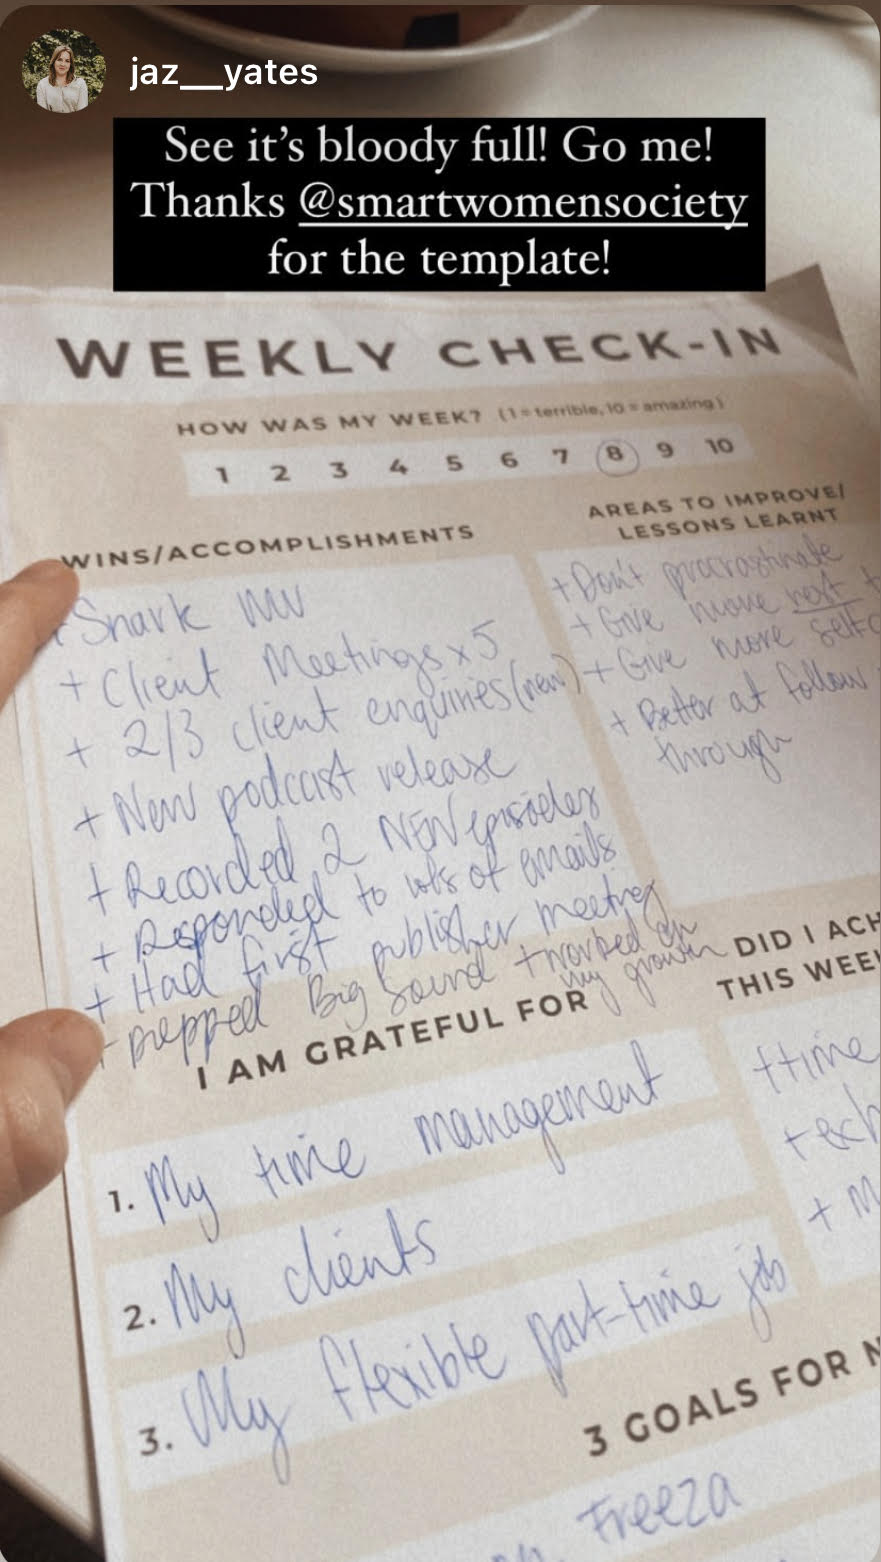 jaz__yates
See it's bloody full! Go me!
Thanks @smartwomensociety
for the template!
WEEKLY CHECK-IN
HOW WAS MY WEEK? (1 = terrible, 10 = amazing)
1 2 3 4 5 6 7 8 9 10
WINS/ACCOMPLISHMENTS
+ Snark MV
+ Client Meetings x 5
+ 2/3 client enquiries (new)
+ New podcast release
+ Recorded 2 NEW episodes
+ Responded to lots of emails
+ Had first publisher meeting
+ prepped Big Sound + worked on
my growth
AREAS TO IMPROVE/
LESSONS LEARNT
+ Don't procrastinate
+ Give more rest +
+ Give more self
+ Better at follow
through
I AM GRATEFUL FOR
1. My time management
2. My clients
3. My flexible part-time job
DID I ACH
THIS WEE
+ time
+ ech
+ M
3 GOALS FOR N
Freeza